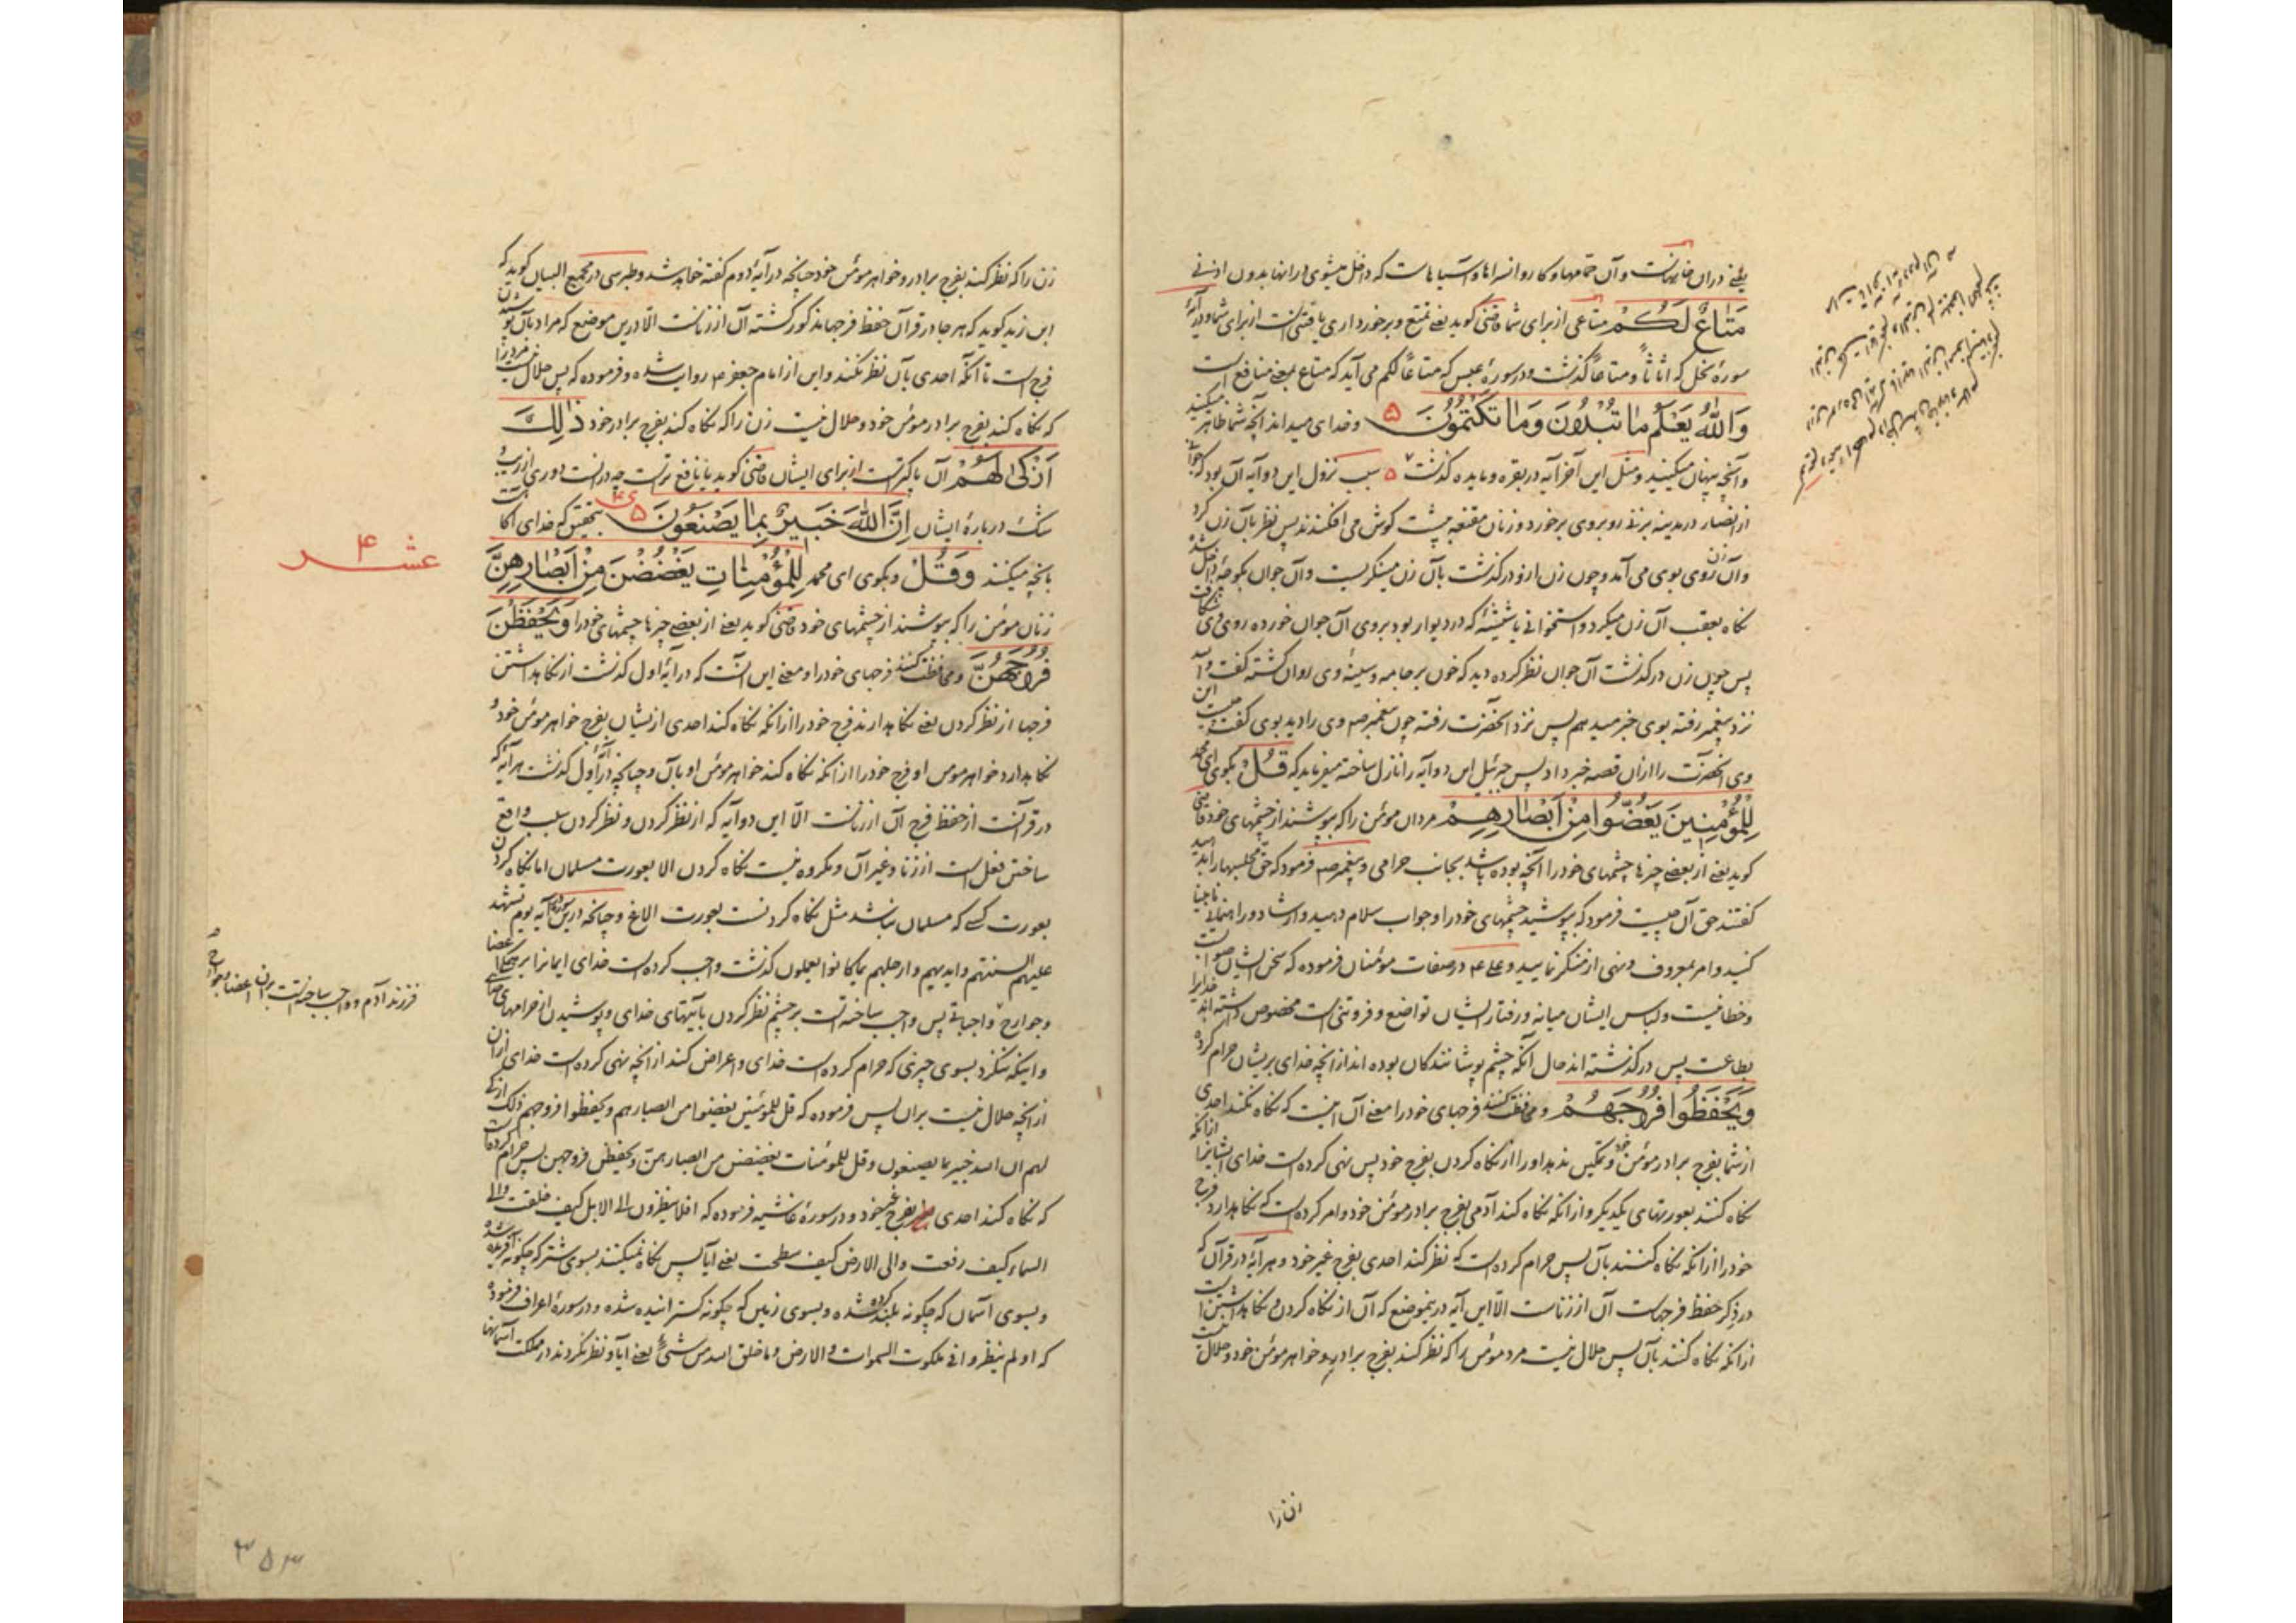 یعنی در آن خانهاست و آن حمامها و کاروانسراها و آسیاهاست که داخل میشوی در آنها بدون اذنی
مَتَاعٌ لَكُمْ متاعی از برای شما قاضی گوید یعنی تمتع و برخورداری یافتنی است از برای شما و در آیهٔ
سورهٔ نحل که اثاثاً و متاعاً گذشت و در سورهٔ عبس که متاعاً لکم می آید که متاع بمعنی منافع است
وَاللّٰهُ يَعْلَمُ مَا تُبْدُونَ وَمَا تَكْتُمُونَ ۵ و خدای میداند آنچه شما ظاهر میکنید
و آنچه پنهان میکنید و مثل این آخر آیه در بقره و مایده گذشت ۵ سبب نزول این دو آیه آن بود که جوانی
از انصار در مدینه بزنی روبروی برخورد و زنان مقنعه پشت گوش می افکندند پس نظر بآن زن کرد
و آن زن روی بوی می آمد و چون زن ازو درگذشت بآن زن مینگریست و آن جوان بکوچهٔ داخل شد
نگاه بعقب آن زن میکرد و استخوانی یا شیشهٔ که در دیوار بود بروی آن جوان خورده روی وی شکافت
پس چون زن درگذشت آن جوان نظر کرده دید که خون بر جامه و سینهٔ وی روان گشته گفت
نزد پیغمبر رفته بوی خبر میدهم پس نزد آنحضرت رفته چون پیغمبر ص وی را دید بوی گفت این چیست
وی آنحضرت را از آن قصه خبر داد پس جبرئیل این دو آیه را نازل ساخته میفرماید که قُلْ بگوی ای محمد
لِلْمُؤْمِنِينَ يَغُضُّوا مِنْ اَبْصَارِهِمْ مردان مومن را که بپوشند از چشمهای خود قاضی
گوید یعنی از بعضی چیزها چشمهای خود را آنچه بوده باشد بجانب حرامی و پیغمبر ص فرمود که حق مجلسها را بدهید
گفتند حق آن چیست فرمود که بپوشید چشمهای خود را و جواب سلام دهید و ارشاد و راهنمائی نابینا
کنید و امر بمعروف و نهی از منکر نمایید و علی ع در صفات مومنان فرموده که سخن ایشان صواب است
و خطا نیست و لباس ایشان میانه و رفتار ایشان تواضع و فروتنی است مخصوص داشته اند خدایرا
بطاعت پس درگذشته اند حال آنکه چشم پوشانندگان بوده اند از آنچه خدای بریشان حرام کرده
وَيَحْفَظُوا فُرُوجَهُمْ و محافظت کنند فرجهای خود را معنی آن اینست که نگاه نکند احدی
از شما بفرج برادر مومن خود و تمکین ندهد او را از نگاه کردن بفرج خود پس نهی کرده است خدای ایشانرا از آنکه
نگاه کنند بعورتهای یکدیگر و از آنکه نگاه کند آدمی بفرج برادر مومن خود و امر کرده است که نگاه بدارد فرج
خود را از آنکه نگاه کنند بآن پس حرام کرده است که نظر کند احدی بفرج غیر خود و هر آیهٔ در قرآن که
در ذکر حفظ فرجهاست آن از زناست الا این آیه درینموضع که آن از نگاه کردن و نگاه داشتن است
از آنکه نگاه کنند بآن پس حلال نیست مرد مومن را که نظر کند بفرج برادر و خواهر مومن خود و حلال نیست
زن را که نظر کند بفرج برادر و خواهر مومن خود چنانچه در آیهٔ دوم گفته خواهد شد و طبرسی در مجمع البیان گوید که
ابن زید گوید که هر جا در قرآن حفظ فرجها مذکور گشته آن از زناست الا درین موضع که مراد بآن پوشیدن
فرج است تا آنکه احدی بآن نظر نکند و این از امام جعفر ع روایت شده و فرموده که پس حلال نیست مرد را
که نگاه کند بفرج برادر مومن خود و حلال نیست زن را که نگاه کند بفرج برادر خود ذٰلِكَ
اَزْكٰى لَهُمْ آن پاکیزه تر است از برای ایشان قاضی گوید یا نافع تر است چه در آنست دوری از ریب
شک دربارهٔ ایشان اِنَّ اللّٰهَ خَبِيرٌ بِمَا يَصْنَعُونَ ۵ بتحقیق که خدای آگاه است
بآنچه میکنند وَقُلْ و بگوی ای محمد لِلْمُؤْمِنَاتِ يَغْضُضْنَ مِنْ اَبْصَارِهِنَّ
زنان مومن را که بپوشند از چشمهای خود قاضی گوید یعنی از بعضی چیزها چشمهای خود را وَيَحْفَظْنَ
فُرُوجَهُنَّ و محافظت کنند فرجهای خود را و معنی این آنست که در آیهٔ اول گذشت از نگاه داشتن
فرجها از نظر کردن یعنی نگاه بدارند فرج خود را از آنکه نگاه کند احدی ازیشان بفرج خواهر مومن خود و
نگاه بدارد خواهر مومن او فرج خود را از آنکه نگاه کند خواهر مومن او بآن و چنانچه در آیهٔ اول گذشت هر آیهٔ که
در قرآنست از حفظ فرج آن از زناست الا این دو آیه که از نظر کردن و نظر کردن سبب واقع
ساختن فعل است از زنا و غیر آن و مکروه نیست نگاه کردن الا بعورت مسلمان اما نگاه کردن
بعورت کسی که مسلمان نباشد مثل نگاه کردنست بعورت الاغ و چنانچه درین سوره در آیه یوم تشهد
علیهم السنتهم و ایدیهم و ارجلهم بما کانوا یعملون گذشت واجب کرده است خدای ایمانرا بر همگی اعضا
و جوارح واجباتی پس واجب ساخته است بر چشم نظر کردن بآیتهای خدای و پوشیدن از حرامهای خدای
و اینکه ننگرد بسوی چیزی که حرام کرده است خدای و اعراض کند از آنچه نهی کرده است خدای از آن
از آنچه حلال نیست بر آن پس فرموده که قل للمومنین یغضوا من ابصارهم و یحفظوا فروجهم ذلک ازکی
لهم ان الله خبیر بما یصنعون و قل للمومنات یغضضن من ابصارهن و یحفظن فروجهن پس حرام کرده است
که نگاه کند احدی بفرج غیر خود و در سورهٔ غاشیه فرموده که افلا ینظرون الی الابل کیف خلقت و الی
السماء کیف رفعت و الی الارض کیف سطحت یعنی آیا پس نگاه نمیکنند بسوی شتر که چگونه آفریده شده
و بسوی آسمان که چگونه بلند کرده شده و بسوی زمین که چگونه گسترانیده شده و در سورهٔ اعراف فرموده
که اولم ینظروا فی ملکوت السموات و الارض و ما خلق الله من شیء یعنی آیا و نظر نکردند در ملکت آسمانها
عشر ۴
فرزند آدم و واجب ساخته است بر آن اعضا و جوارح
زن را
۳۵۳